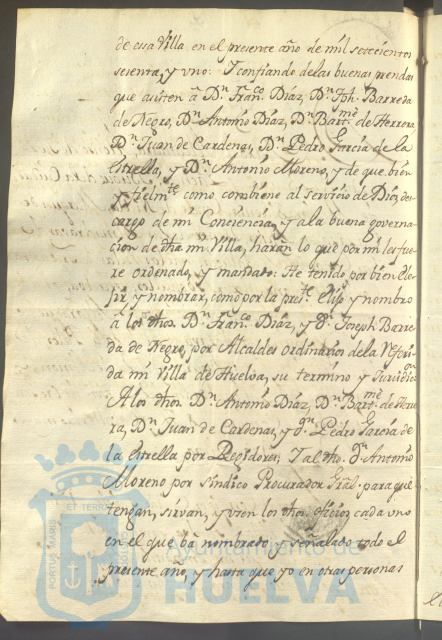 de esa Villa en el presente año de mil setecientos
sesenta, y uno: Y confiando delas buenas prendas
que asisten â Dn. Franco. Díaz, Dn. Jph. Barreda
de Negro, Dn. Antonio Díaz, Dn. Bartme. de Herrera
Dn. Juan de Cardenas, Dn. Pedro Garcia de la
Estrella, y Dn. Antonio Moreno, y de que bien
y fielmte. como combiene al servicio de Dios, des-
cargo de mi Conciencia, y ala buena governa-
cion de dha mi Villa, harán lo que por mi les fue-
re ordenado, y mandato: He tenido por bien Ele-
jir, y nombrar, como por la preste. Elijo y nombro
á los dhos. Dn. Franco. Díaz, y Dn. Joseph Barre-
da de Negro, por Alcaldes ordinarios dela referi-
da mi Villa de Huelva, su termino y Jurisdicn.
A los dhos Dn. Antonio Díaz, Dn. Bartme. de Herre-
ra, Dn. Juan de Cardenas, y Dn. Pedro Garcia de
la Estrella por Regidores; Y al dho. Dn. Antonio
Moreno por Sindico Procurador Grâl. para que
tengan, sirvan, y usen los dhos. oficios cada uno
en el que bâ nombrado y señalado todo el
presente año, y hasta que yo en otras personas
PORTUS MARIS ET TERRAE
Ayuntamiento de
HUELVA